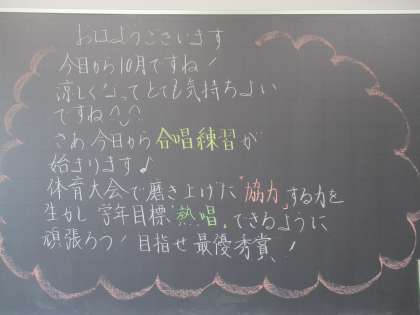 おはようございます
今日から10月ですね！
涼しくなってとても気持ちよい
ですね^^
さあ今日から合唱練習が
始まります♪
体育大会で磨き上げた"協力"する力を
生かし学年目標"熱唱"できるように
頑張ろう！目指せ最優秀賞！